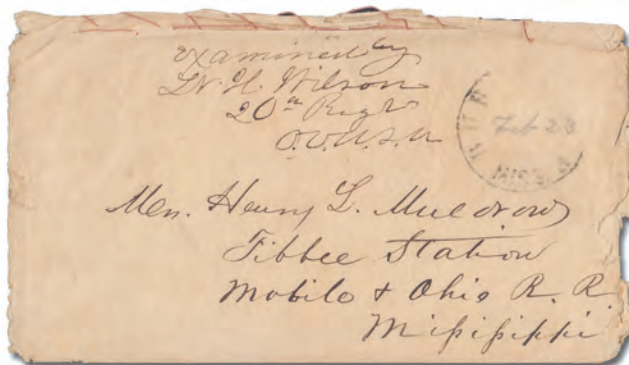 examined by
Lt. H. Wilson
20th Regt
O.V.U.S.A
Feb
Mrs. Henry L. Muldrow
Tibbee Station
Mobile & Ohio R. R.
Mississippi